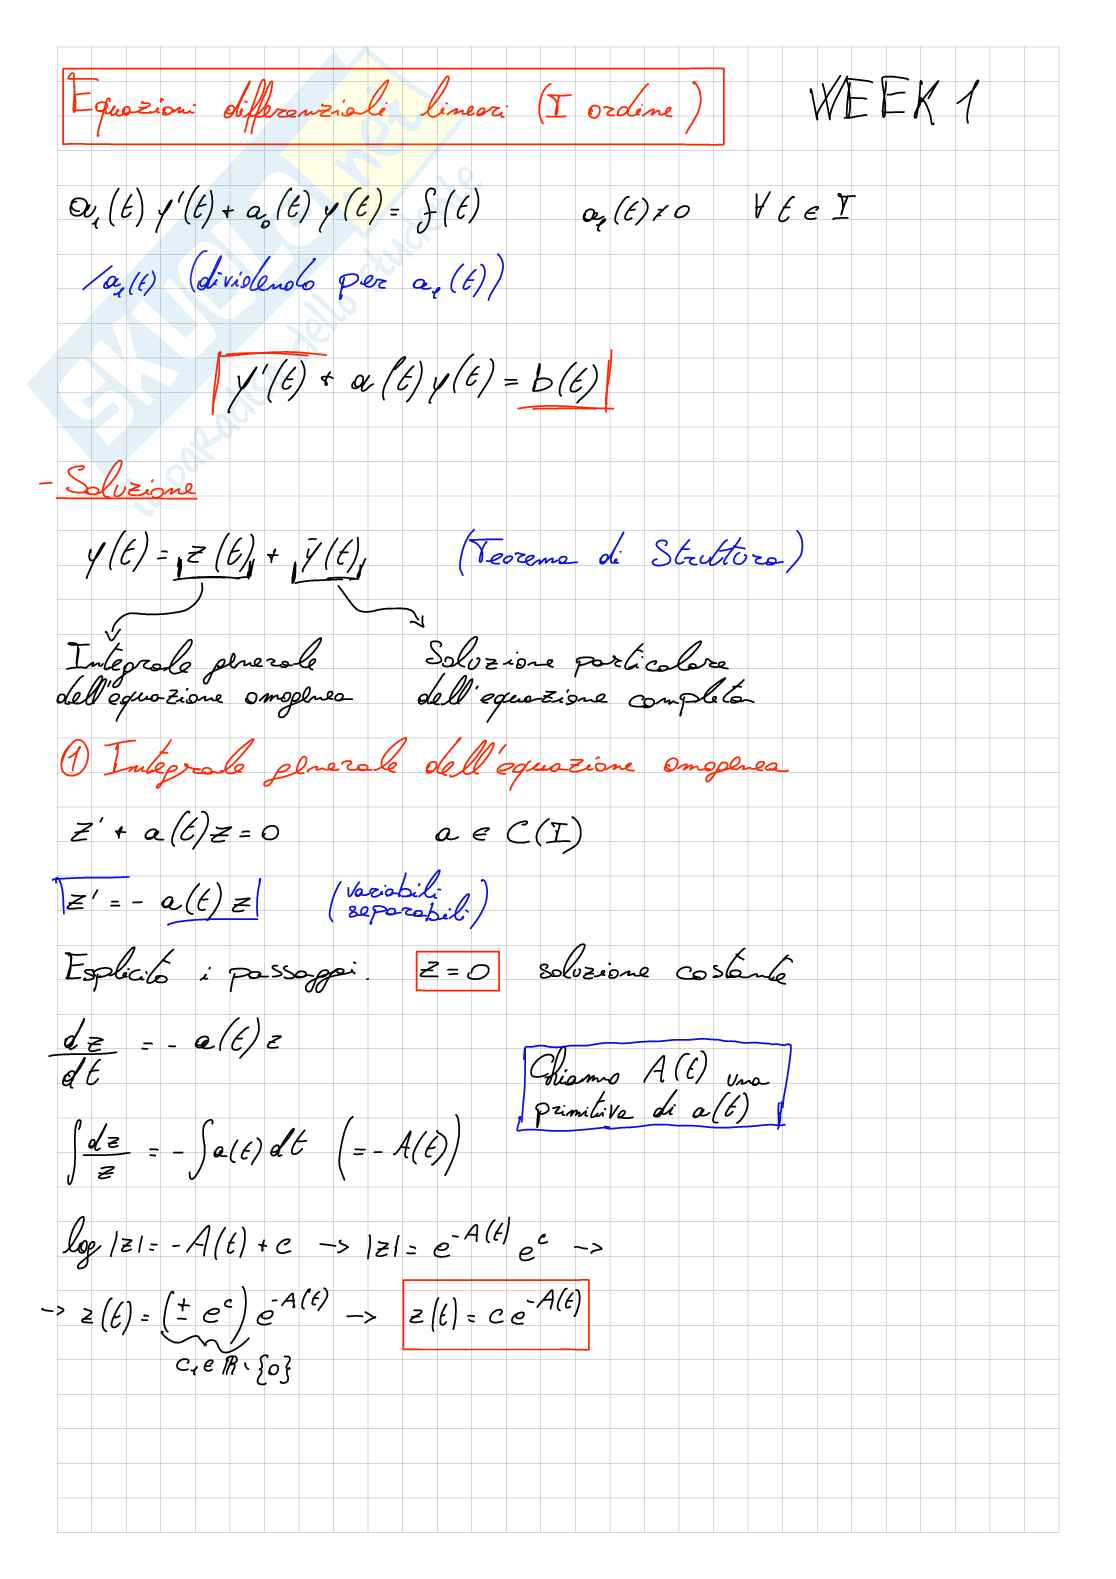 Equazioni differenziali lineari (I ordine)
WEEK 1
a₁(t) y'(t) + a₀(t) y(t) = f(t)    a₁(t) ≠ 0    ∀ t ∈ I
/a₁(t) (dividendo per a₁(t))
y'(t) + a(t) y(t) = b(t)
- Soluzione
y(t) = z(t) + ȳ(t)    (Teorema di Struttura)
Integrale generale
dell'equazione omogenea
Soluzione particolare
dell'equazione completa
① Integrale generale dell'equazione omogenea
z' + a(t)z = 0    a ∈ C(I)
z' = - a(t) z    (variabili separabili)
Esplicito i passaggi.    z = 0    soluzione costante
dz/dt = - a(t) z
Chiamo A(t) una
primitiva di a(t)
∫ dz/z = - ∫ a(t) dt    (= - A(t))
log |z| = - A(t) + c → |z| = e^{-A(t)} e^c →
→ z(t) = (± e^c) e^{-A(t)} → z(t) = c e^{-A(t)}
c₁ ∈ ℝ \ {0}
SKUOLA.net
il paradiso dello studente